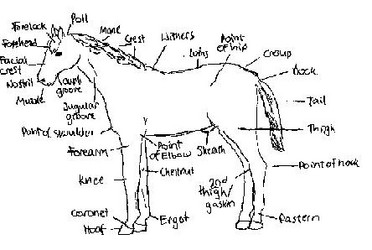 Poll
Forelock
Mane
Forehead
Crest
Withers
Point
of hip
Loins
Croup
Facial
crest
Dock
Nostril
Muzzle
groove
Jugular
groove
Tail
Point of shoulder
Thigh
Forearm
Point
of Elbow
Sheath
Point of hock
Knee
Chestnut
2nd
thigh/
gaskin
Coronet
Hoof
Ergot
Pastern